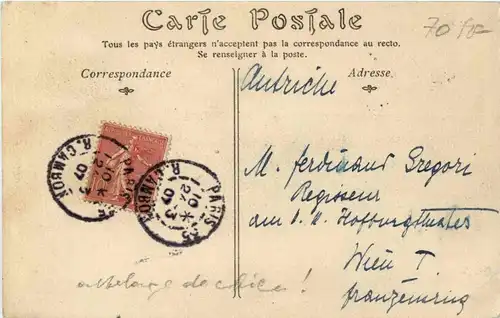 Carte Postale
70 fr-
Tous les pays étrangers n'acceptent pas la correspondance au recto.
Se renseigner à la poste.
Correspondance
Adresse.
Autriche
R. CAMBON
PARIS
12-3
07
R. CAMBON
PARIS 33
10
12-3
07
M. Ferdinand Gregori
Regisseur
am k. k. Hofburgtheater
Wien I.
Franzensring
attelage de chien !